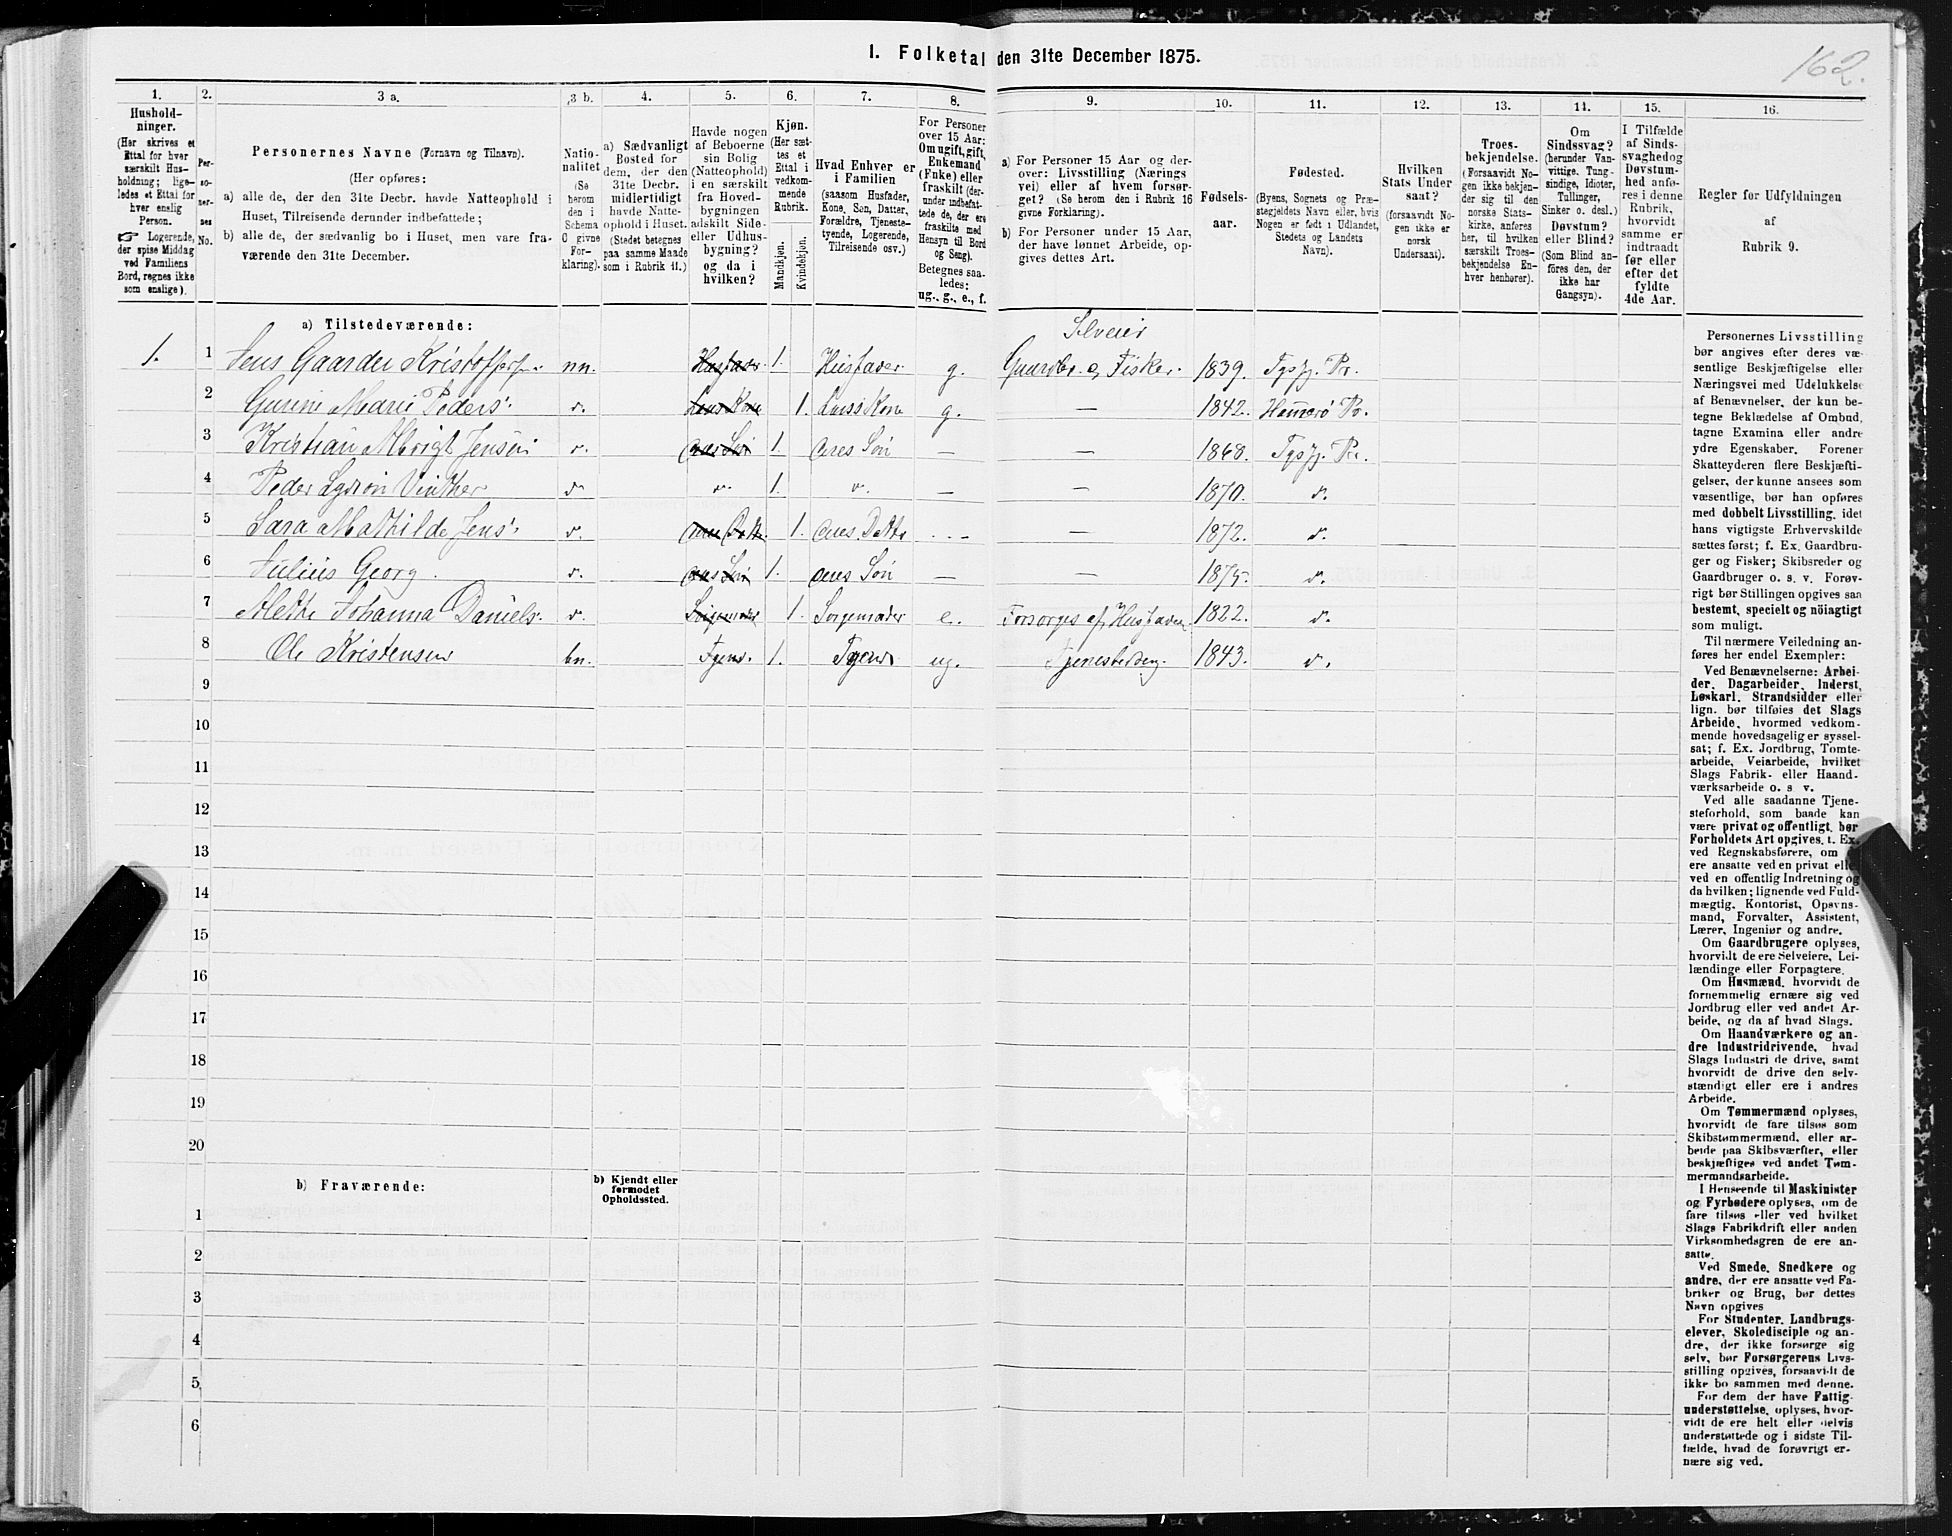 1. Folketal den 31te December 1875.
162.
1. 2. 3 a. 3 b. 4. 5. 6. 7. 8. 9. 10. 11. 12. 13. 14. 15. 16.
Hushold-
ninger.
(Her skrives et
Ettal for hver
særskilt Hus-
holdning; lige-
ledes et Ettal for
hver enslig
Person.
☞ Logerende,
der spise Middag
ved Familiens
Bord, regnes ikke
som enslige).
Per-
so-
ner-
nes
No.
Personernes Navne (Fornavn og Tilnavn).
(Her opføres:
a) alle de, der den 31te Decbr. havde Natteophold i
Huset, Tilreisende derunder indbefattede;
b) alle de, der sædvanlig bo i Huset, men vare fra-
værende den 31te December.
Natio-
nalitet
(Se
herom
den i
Schema
O givne
For-
klaring).
a) Sædvanligt
Bosted for
dem, der den
31te Decbr.
midlertidigt
havde Natte-
ophold i Huset.
(Stedet betegnes
paa samme Maade
som i Rubrik 11.)
Havde nogen
af Beboerne
sin Bolig
(Natteophold)
i en særskilt
fra Hoved-
bygningen
adskilt Side-
eller Udhus-
bygning?
og da i
hvilken?
Kjøn.
(Her sæt-
tes et
Ettal i
vedkom-
mende
Rubrik.
Mandkjøn.
Kvindekjøn.
Hvad Enhver er
i Familien
(saasom Husfader,
Kone, Søn, Datter,
Forældre, Tjeneste-
tyende, Logerende,
Tilreisende osv.)
For Personer
over 15 Aar:
Om ugift, gift,
Enkemand
(Enke) eller
fraskilt (der-
under indbefat-
tede de, der ere
fraskilte med
Hensyn til Bord
og Seng).
Betegnes saa-
ledes:
ug., g., e., f.
a) For Personer 15 Aar og der-
over: Livsstilling (Nærings
vei) eller af hvem forsør-
get? (Se herom den i Rubrik 16
givne Forklaring).
b) For Personer under 15 Aar,
der have lønnet Arbeide, op-
gives dettes Art.
Fødsels-
aar.
Fødested.
(Byens, Sognets og Præ-
stegjeldets Navn eller, hvis
Nogen er født i Udlandet,
Stedets og Landets
Navn).
Hvilken
Stats Under
saat?
(forsaavidt No-
gen ikke er
norsk
Undersaat).
Troes-
bekjendelse.
(Forsaavidt No-
gen ikke bekjen-
der sig til den
norske Stats-
kirke, anføres
her, til hvilken
særskilt Troes-
bekjendelse En-
hver henhører).
Om
Sindssvag?
(herunder Van-
vittige, Tung-
sindige, Idioter,
Tullinger,
Sinker o. desl.)
Døvstum?
eller Blind?
(Som Blind an-
føres den, der
ikke har
Gangsyn).
I Tilfælde
af Sinds-
svaghed og
Døvstum-
hed anfø-
res i denne
Rubrik,
hvorvidt
samme er
indtraadt
før eller
efter det
fyldte
4de Aar.
Regler for Udfyldningen
af
Rubrik 9.
a) Tilstedeværende:
Selveier
1. 1 Jens Gaarder Kristoffersen nn. Husfader 1. Husfader g. Gaardbr. og Fisker. 1839. Tysfj. Pr.
2 Gurine Marie Peders' d. hans Kone 1. hans Kone g. — 1842. Hamerø Pr.
3 Kristian Albrigt Jensen d. deres Søn 1. deres Søn — — 1868. Tysfj. Pr.
4 Peder Vinther d. d. 1. d. — — 1870. d.
5 Sara Mathilde Jens' d. deres Datt. 1. deres Dattr — — 1872. d.
6 Julius Georg. d. deres Søn 1. deres Søn — — 1875. d.
7 Johanna Daniels. d. 1. e. Forsørges af Husfaderen 1822. d.
8 Ole Kristensen bn. Tjener. 1. Tjener ug. 1843. d.
9
10
11
12
13
14
15
16
17
18
19
20
b) Fraværende:
b) Kjendt eller
formodet
Opholdssted.
1
2
3
4
5
6
Personernes Livsstilling
bør angives efter deres væ-
sentlige Beskjæftigelse eller
Næringsvei med Udelukkelse
af Benævnelser, der kun be-
tegne Beklædelse af Ombud,
tagne Examina eller andre
ydre Egenskaber. Forener
Skatteyderen flere Beskjæfti-
gelser, der kunne ansees som
væsentlige, bør han opføres
med dobbelt Livsstilling, idet
hans vigtigste Erhvervskilde
sættes først; f. Ex. Gaardbru-
ger og Fisker; Skibsreder og
Gaardbruger o. s. v. Forøv-
rigt bør Stillingen opgives saa
bestemt, specielt og nøiagtigt
som muligt.
Til nærmere Veiledning an-
føres her endel Exempler:
Ved Benævnelserne: Arbei-
der, Dagarbeider, Inderst,
Løskarl, Strandsidder eller
lign. bør tilføies det Slags
Arbeide, hvormed vedkom-
mende hovedsagelig er syssel-
sat; f. Ex. Jordbrug, Tomte-
arbeide, Veiarbeide, hvilket
Slags Fabrik- eller Haand-
værksarbeide o. s. v.
Ved alle saadanne Tjene-
steforhold, som baade kan
være privat og offentligt, bør
Forholdets Art opgives, t. Ex.
ved Regnskabsførere, om
ere ansatte ved en privat eller
ved en offentlig Indretning og
da hvilken; lignende ved Fuld-
mægtig, Kontorist, Opsyns-
mand, Forvalter, Assistent,
Lærer, Ingeniør og andre.
Om Gaardbrugere oplyses,
hvorvidt de ere Selveiere, Lei-
lændinge eller Forpagtere.
Om Husmænd, hvorvidt de
fornemmelig ernære sig ved
Jordbrug eller ved andet Ar-
beide, og da af hvad Slags.
Om Haandværkere og an-
dre Industridrivende, hvad
Slags Industri de drive, samt
hvorvidt de drive den selv-
stændigt eller ere i andres
Arbeide.
Om Tømmermænd oplyses,
hvorvidt de fare tilsøs som
Skibstømmermænd, eller ar-
beide paa Skibsværfter, eller
beskjæftiges ved andet Tøm-
mermandsarbeide.
I Henseende til Maskinister
og Fyrbødere oplyses, om de
fare tilsøs eller ved hvilket
Slags Fabrikdrift eller anden
Virksomhedsgren de ere an-
satte.
Ved Smede, Snedkere og
andre, der ere ansatte ved Fa-
briker og Brug, bør dettes
Navn opgives
For Studenter, Landbrugs-
elever, Skoledisciple og an-
dre, der ikke forsørge sig
selv, bør Forsørgerens Livs-
stilling opgives, forsaavidt de
ikke bo sammen med denne.
For dem der have Fattig-
understøttelse, oplyses, hvor-
vidt de ere helt eller delvis
understøttede og i sidste Til-
fælde, hvad de forøvrigt er-
nære sig ved.